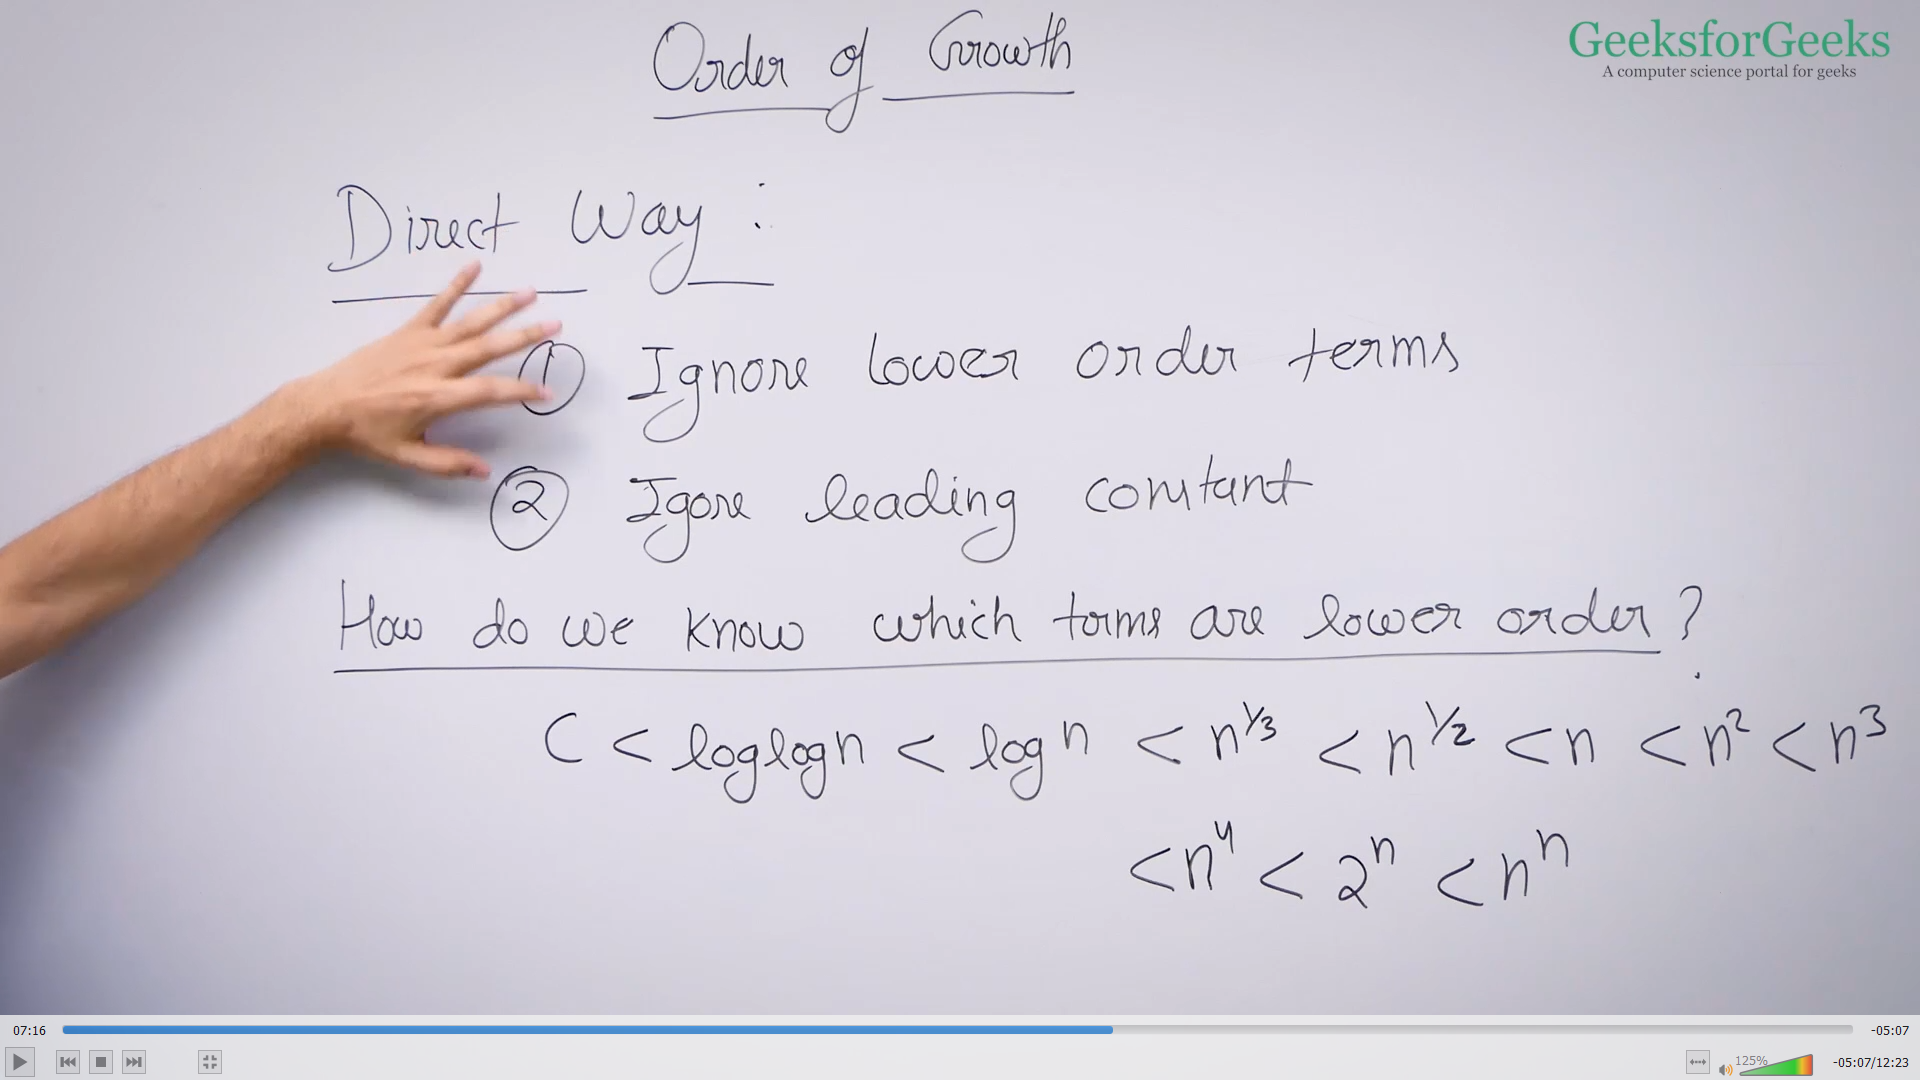 Order of Growth
GeeksforGeeks
A computer science portal for geeks
Direct Way :
① Ignore lower order terms
② Igore leading constant
How do we know which terms are lower order ?
C < loglogn < log n < n^1/3 < n^1/2 < n < n^2 < n^3
< n^4 < 2^n < n^n
07:16
-05:07
125%
-05:07/12:23